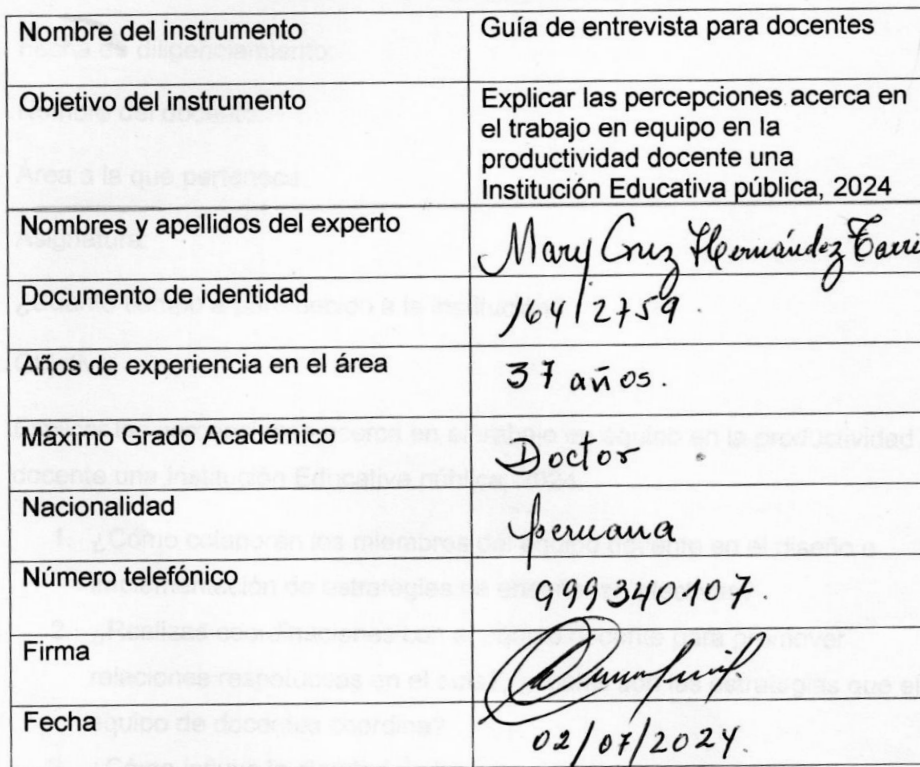 Nombre del instrumento Guía de entrevista para docentes
Objetivo del instrumento Explicar las percepciones acerca en
el trabajo en equipo en la
productividad docente una
Institución Educativa pública, 2024
Nombres y apellidos del experto Mary Cruz Hernández
Documento de identidad 16412759.
Años de experiencia en el área 37 años.
Máximo Grado Académico Doctor
Nacionalidad peruana
Número telefónico 999340107.
Firma
Fecha 02/07/2024.